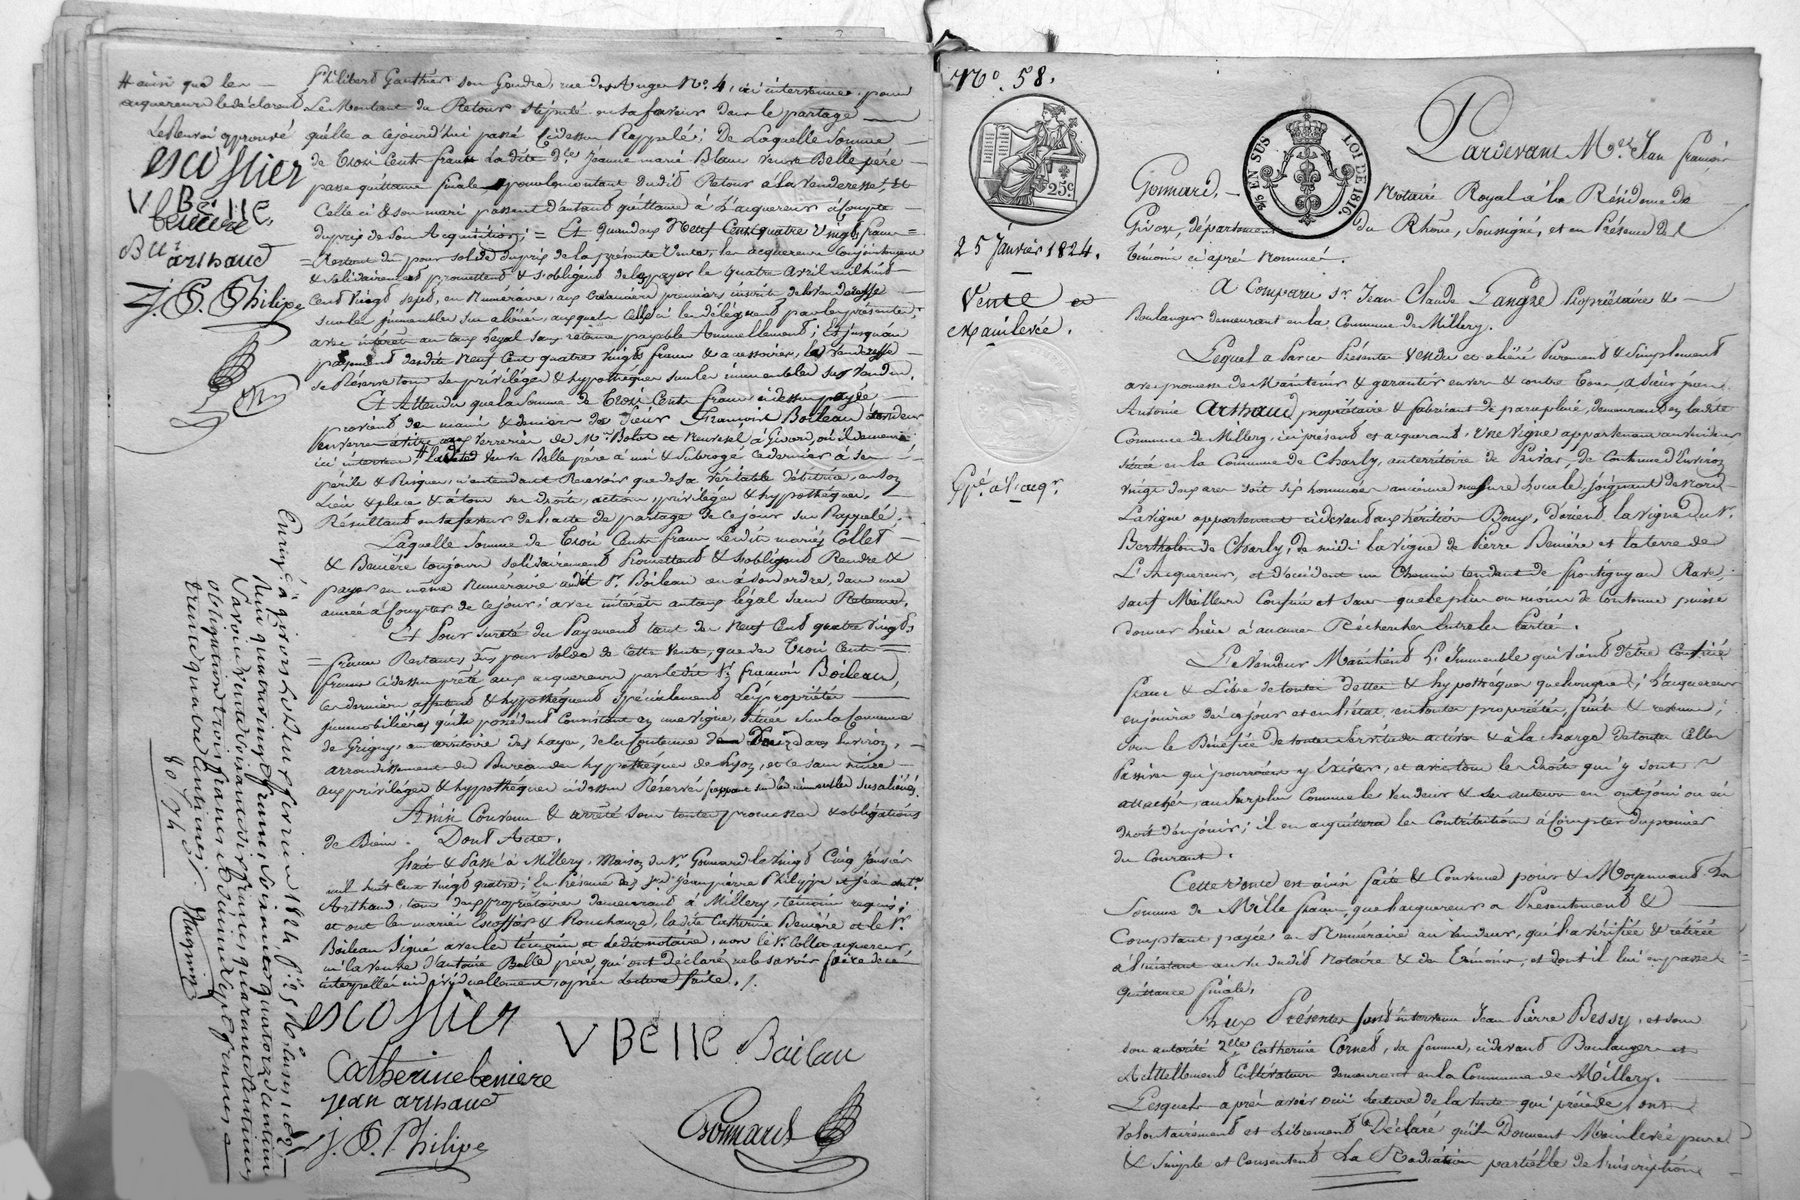 # ainsi que les
acquereurs le déclarent
Le Renvoi approuvé
escoffier
V BELLE
beniere
Btt arthaud
J. P. Philipe
Philibert Gauthier son Gendre, rue des Anges No. 4, ici intervenue, pour
Le Montant du Retour stipulé en sa faveur dans le partage
qu'elle a cejourd'hui passé Cidessus Rappelé; De Laquelle Somme
de Trois Cents francs La dite dlle Jeanne marie Blanc veuve Belle père
passe quittance finale pour le montant dudit Retour à la venderesse, et
Celle ci & son mari passent d'autant quittance à L'acquereur à Compte
du prix de Son Acquisition; = Et Quand aux Neuf Cent quatre Vingt francs =
= Restant dû pour solde du prix de la présente Vente, les acquereurs Conjointement
& solidairement promettent & s'obligent de les payer le quatre Avril mil huit
Cent Vingt sept, en Numéraire, aux Créanciers premiers inscrits de la Venderesse
sur les immeubles sus aliénés, auxquels Celle ci les délègue par les présentes;
avec intérêt au taux Légal sans retenue payable Annuellement; Et jusqu'au
payement desdits Neuf Cent quatre vingts francs & accessoires, la Venderesse
se Réserve tous ses privilèges & hypothèques sur les immeubles sus Vendus.
Et Attendu que la Somme de Trois Cents francs cidessus payée
provient des mains & deniers du Sieur François Boileau
en verre à vitre aux Verreries de Mrs Bolot et Neuvesel à Givors, où il demeure
ici intervenu, # Ladite veuve Belle père à mis & subrogé ce dernier à ses
périls & Risques, n'entendant Recevoir que de sa véritable débitrice, en son
Lieu & place & à tous ses droits, actions, privilèges & hypothèques,
Résultant en sa faveur de l'acte de partage de ce jour sus Rappelé.
Laquelle Somme de Trois Cents francs Lesdits mariés Collet
& Benière toujours solidairement Promettent & s'obligent Rendre &
payer en même Numéraire audit Sr. Boileau ou à son ordre, dans une
année à Compter de ce jour; avec intérêts au taux légal sans Retenue.
Et Pour sureté du Payement tant des Neuf Cent quatre Vingts
= francs Restants dûs pour solde de Cette Vente, que des Trois Cents =
francs cidessus prêtés aux acquereurs par ledit Sr. françois Boileau,
ces derniers affectent & hypothèquent spécialement Les propriétés
immobilières qu'ils possèdent Consistant en une vigne, située sur la Commune
de Grigny, au territoire des hayes, de la Contenue de Douze ares Environ,
arrondissement du Bureau des hypothèques de Lyon, et le sans nuire
aux privilèges & hypothèques cidessus Réservés frappant sur les immeubles Susaliénés.
Ainsi Convenu & arrêté sous toutes promesses & obligations
de Biens. Dont Acte.
fait & Passé à Millery, Maison du Sr. Gonnard le vingt Cinq Janvier
mil huit Cent vingt quatre; En Présence des Srs. Jean pierre Philippe et Jean Antne
Arthaud, tous deux propriétaires demeurant à Millery, témoins requis;
et ont les mariés Escoffier & Ronchanze, ladite Catherine Benière et le Sr.
Boileau Signé avec les témoins et ledit notaire, non le Sr. Collet acquereur,
ni la veuve d'antoine Belle père, qui ont déclaré ne le savoir faire de ce
interpellés individuellement, après Lecture faite. /.
escoffier
V BELLE Boilau
Catherine beniere
jean arthaud
J. P. Philipe
Gonnard
No. 58.
25 Janvier 1824.
Vente et
mainlevée.
Gde à l'acqr.
25c.
EN SUS
LOI DE 1816.
Pardevant Me. Jean françois
Gonnard, Notaire Royal à la Résidence de
Givors, département du Rhône, Soussigné, et en Présence des
témoins ci après Nommés.
A Comparu sr. Jean Claude Gangre Propriétaire &
Boulanger demeurant en la Commune de Millery.
Lequel a Par ces Présentes vendu et aliéné Purement & Simplement
avec promesse de Maintenir & garantir envers & contre Tous, a sieur Jean
Antoine Arthaud, propriétaire & fabricant de parapluie, demeurant en ladite
Commune de Millery, ici présent et acquerant, Une vigne appartenant au Vendeur
située en la Commune de Charly, au territoire de Pivar, de Contenue d'environ
vingt deux ares soit six hommées ancienne mesure Locale, joignant de Nord
La vigne appartenant cidevant aux héritiers Bony, d'orient la vigne du Sr.
Bertholon de Charly, de midi la vigne de Pierre Benière et la terre de
L'Acquereur, et d'occident un Chemin tendant de frontigny au Rave,
sauf Meilleurs Confins et sans que le plus ou moins de Contenue puisse
donner Lieu à aucunes Recherches entre les Parties.
Le Vendeur Maintient L'Immeuble qui vient d'être Confiné
franc & Libre de toutes dettes & hypothèques quelconques; L'acquereur
en jouira dès ce jour et en l'état, en toutes propriétés, fruits & revenus;
sous le Bénéfice de toutes servitudes actives & à la charge de toutes Celles
Passives qui pourroient y Exister, et avec tous les droits qui y sont
attachés, au surplus Comme le Vendeur & ses auteurs en ont joui ou eu
droit d'en jouir; il en acquittera les Contributions à Compter du premier
du Courant.
Cette vente est ainsi faite & Convenue pour & Moyennant La
somme de Mille francs, que l'acquereur a Présentement &
Comptant payée en Numéraire au vendeur, qui l'a vérifiée & retirée
à l'instant au vu dudit Notaire & des Témoins, et dont il lui en passe
quittance finale.
Aux Présentes sont intervenus Jean Pierre Bessy, et sous
son autorité dlle Catherine Cornet, sa femme, cidevant Boulangers et
Actuellement Cultivateurs demeurant en la Commune de Millery.
Lesquels après avoir ouï Lecture de la Vente qui précède, ont
volontairement et Librement Déclaré qu'ils Donnent Mainlevée pure
& simple et Consentent La Radiation partielle de l'inscription